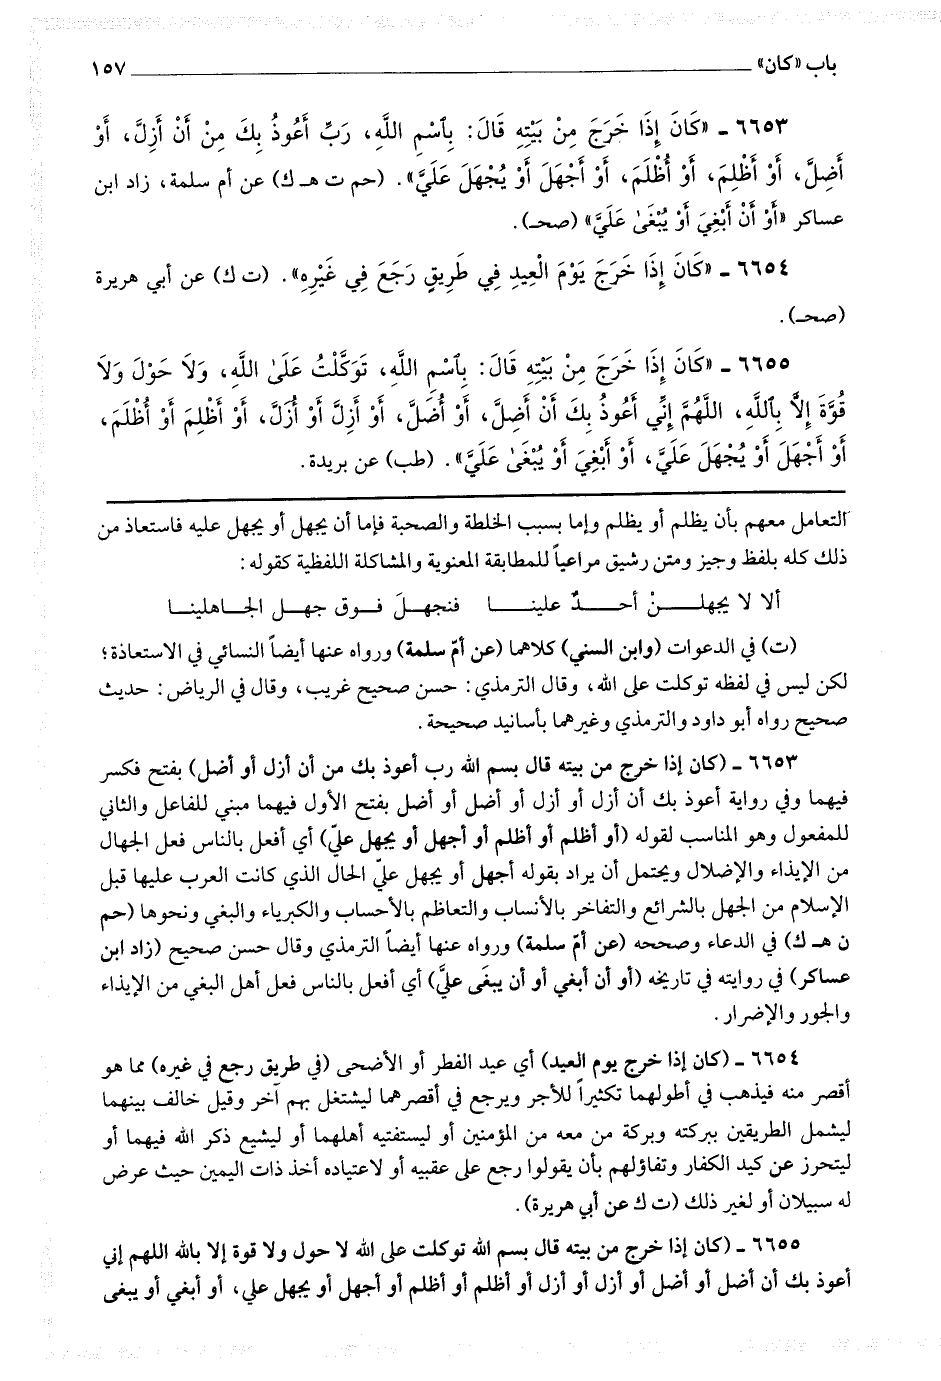 باب «كان» ١٥٧
٦٦٥٣ ـ «كَانَ إِذَا خَرَجَ مِنْ بَيْتِهِ قَالَ: بِٱسْمِ اللَّهِ، رَبِّ أَعُوذُ بِكَ مِنْ أَنْ أَزِلَّ، أَوْ
أَضِلَّ، أَوْ أَظْلِمَ، أَوْ أُظْلَمَ، أَوْ أَجْهَلَ أَوْ يُجْهَلَ عَلَيَّ». (حم ت هـ ك) عن أم سلمة، زاد ابن
عساكر «أَوْ أَنْ أَبْغِيَ أَوْ يُبْغَىٰ عَلَيَّ» (صحـ).
٦٦٥٤ ـ «كَانَ إِذَا خَرَجَ يَوْمَ الْعِيدِ فِي طَرِيقٍ رَجَعَ فِي غَيْرِهِ». (ت ك) عن أبي هريرة
(صحـ).
٦٦٥٥ ـ «كَانَ إِذَا خَرَجَ مِنْ بَيْتِهِ قَالَ: بِٱسْمِ اللَّهِ، تَوَكَّلْتُ عَلَىٰ اللَّهِ، وَلَا حَوْلَ وَلَا
قُوَّةَ إِلَّا بِٱللَّهِ، اللَّهُمَّ إِنِّي أَعُوذُ بِكَ أَنْ أَضِلَّ، أَوْ أُضَلَّ، أَوْ أَزِلَّ أَوْ أُزَلَّ، أَوْ أَظْلِمَ أَوْ أُظْلَمَ،
أَوْ أَجْهَلَ أَوْ يُجْهَلَ عَلَيَّ، أَوْ أَبْغِيَ أَوْ يُبْغَىٰ عَلَيَّ». (طب) عن بريدة.
التعامل معهم بأن يظلم أو يظلم وإما بسبب الخلطة والصحبة فإما أن يجهل أو يجهل عليه فاستعاذ من
ذلك كله بلفظ وجيز ومتن رشيق مراعياً للمطابقة المعنوية والمشاكلة اللفظية كقوله:
ألا لا يجهلـــنْ أحـــدٌ علينـــا فنجهـلَ فـوق جهـل الجـاهلينـا
(ت) في الدعوات (وابن السني) كلاهما (عن أمّ سلمة) ورواه عنها أيضاً النسائي في الاستعاذة؛
لكن ليس في لفظه توكلت على الله، وقال الترمذي: حسن صحيح غريب، وقال في الرياض: حديث
صحيح رواه أبو داود والترمذي وغيرهما بأسانيد صحيحة.
٦٦٥٣ ـ (كان إذا خرج من بيته قال بسم الله رب أعوذ بك من أن أزل أو أضل) بفتح فكسر
فيهما وفي رواية أعوذ بك أن أزل أو أزل أو أضل أو أضل بفتح الأول فيهما مبني للفاعل والثاني
للمفعول وهو المناسب لقوله (أو أظلم أو أظلم أو أجهل أو يجهل عليّ) أي أفعل بالناس فعل الجهال
من الإيذاء والإضلال ويحتمل أن يراد بقوله أجهل أو يجهل عليّ الحال الذي كانت العرب عليها قبل
الإسلام من الجهل بالشرائع والتفاخر بالأنساب والتعاظم بالأحساب والكبرياء والبغي ونحوها (حم
ن هـ ك) في الدعاء وصححه (عن أمّ سلمة) ورواه عنها أيضاً الترمذي وقال حسن صحيح (زاد ابن
عساكر) في روايته في تاريخه (أو أن أبغي أو أن يبغَى عليَّ) أي أفعل بالناس فعل أهل البغي من الإيذاء
والجور والإضرار.
٦٦٥٤ ـ (كان إذا خرج يوم العيد) أي عيد الفطر أو الأضحى (في طريق رجع في غيره) مما هو
أقصر منه فيذهب في أطولهما تكثيراً للأجر ويرجع في أقصرهما ليشتغل بهم آخر وقيل خالف بينهما
ليشمل الطريقين ببركته وبركة من معه من المؤمنين أو ليستفتيه أهلهما أو ليشيع ذكر الله فيهما أو
ليتحرز عن كيد الكفار وتفاؤلهم بأن يقولوا رجع على عقبيه أو لاعتياده أخذ ذات اليمين حيث عرض
له سبيلان أو لغير ذلك (ت ك عن أبي هريرة).
٦٦٥٥ ـ (كان إذا خرج من بيته قال بسم الله توكلت على الله لا حول ولا قوة إلا بالله اللهم إني
أعوذ بك أن أضل أو أضل أو أزل أو أزل أو أظلم أو أظلم أو أجهل أو يجهل علي، أو أبغي أو يبغى